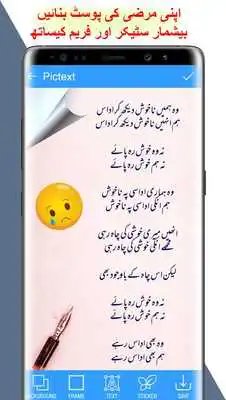 اپنی مرضی کی پوسٹ بنائیں
بیشمار سٹیکر اور فریم کیساتھ
Pictext
وہ ہمیں ناخوش دیکھ کر اداس
ہم انہیں ناخوش دیکھ کر اداس
نہ وہ خوش رہ پائے
نہ ہم خوش رہ پائے
وہ ہماری اداسی پہ ناخوش
ہم انکی اداسی پہ ناخوش
انھیں میری خوشی کی چاہ رہی
مجھے انکی خوشی کی چاہ رہی
لیکن اس چاہ کے باوجود بھی
نہ وہ خوش رہ پائے
نہ ہم خوش رہ پائے
وہ بھی اداس رہے
ہم بھی اداس رہے
BACKGROUND FRAME TEXT STICKER SAVE